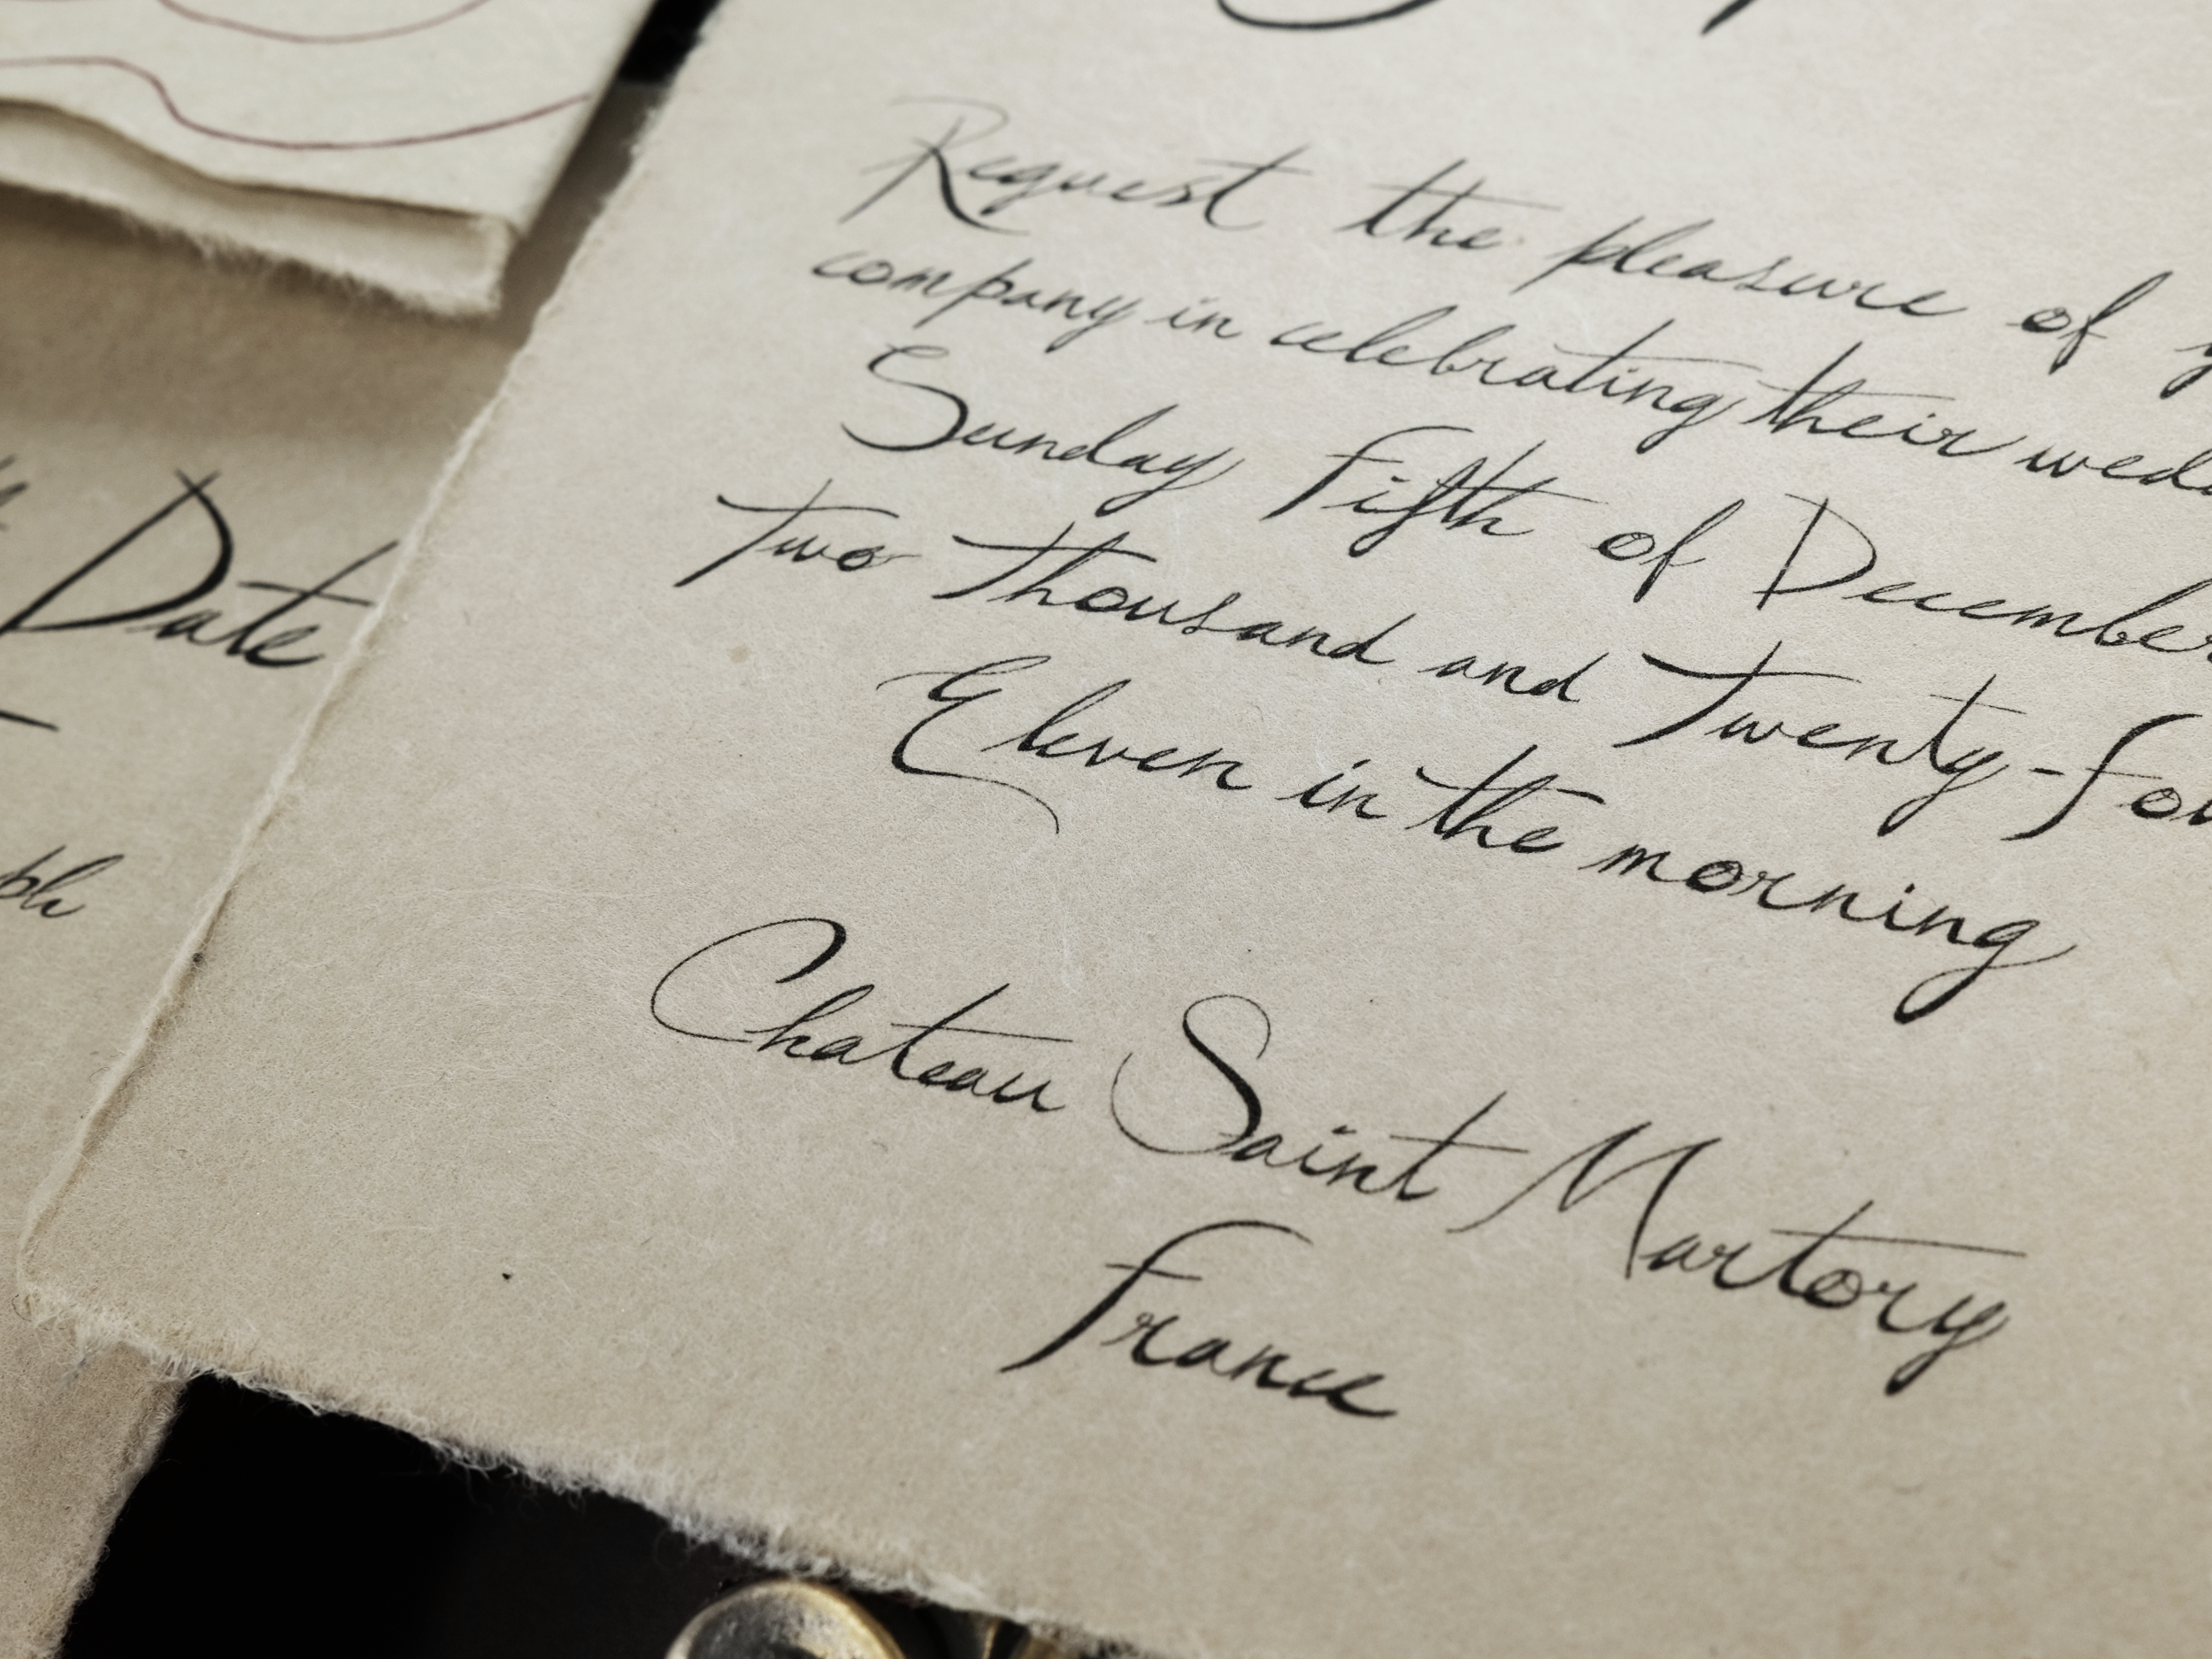 Date
Request the pleasure of
company in celebrating their
Sunday Fifth of December
Two Thousand and Twenty-
Eleven in the morning
Chateau Saint Martory
France